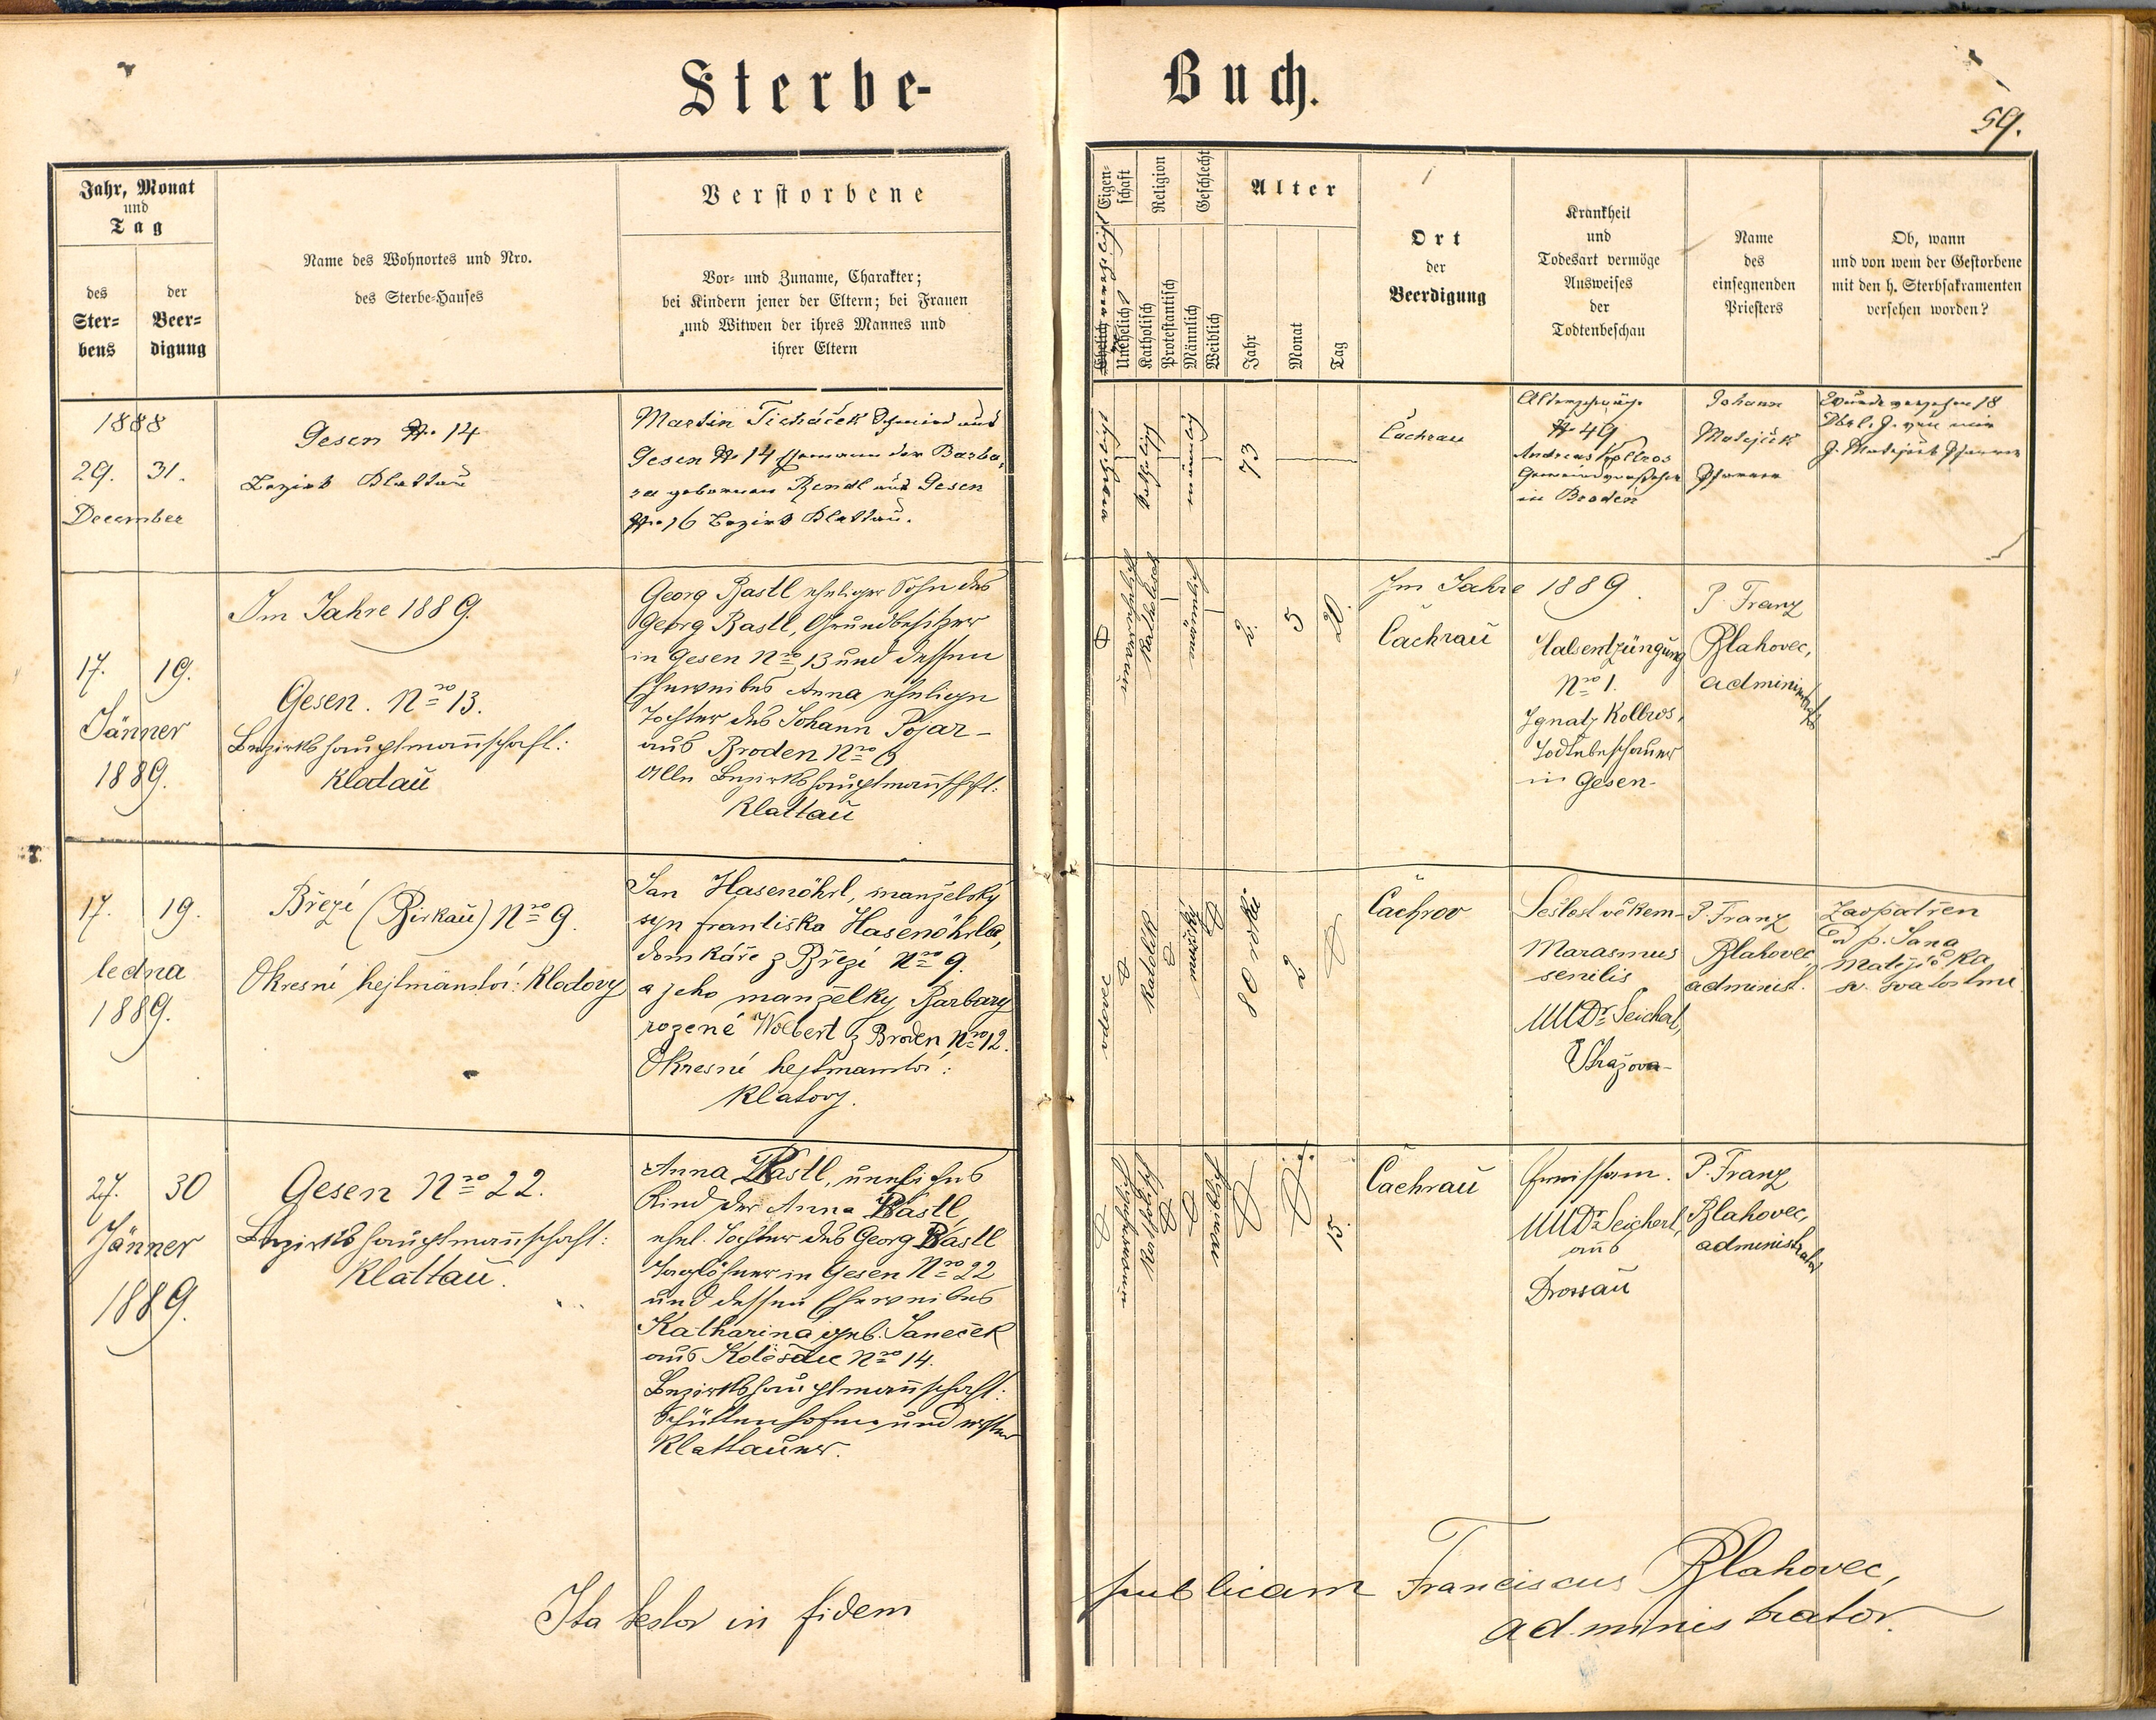 Sterbe-
Buch.
59.
Jahr, Monat
und
Tag
des
Ster-
bens
der
Beer-
digung
Name des Wohnortes und Nro.
des Sterbe-Hauses
Verstorbene
Vor- und Zuname, Charakter;
bei Kindern jener der Eltern; bei Frauen
und Witwen der ihres Mannes und
ihrer Eltern
Eigen-
schaft
Unehelich
Religion
Katholisch
Protestantisch
Geschlecht
Männlich
Weiblich
Alter
Jahr
Monat
Tag
Ort
der
Beerdigung
Krankheit
und
Todesart vermöge
Ausweises
der
Todtenbeschau
Name
des
einsegnenden
Priesters
Ob, wann
und von wem der Gestorbene
mit den h. Sterbsakramenten
versehen worden?
1888
29. 31.
December
Gesen No 14
Bezirk Klattau
Martin Ticháček Schmied aus
Gesen No 14 Ehemann der Barba-
ra gebornen Rendl aus Gesen
No 16 Bezirk Klattau.
katholisch
männlich
73
Čachrau
Altersschwäche
No 49
Andreas Kollros
Gemeindevorsteher
in Broden
Johann
Matejček
Pfarrer
Wurde versehen 18
von mir
J. Matejček Pfarrer
Im Jahre 1889.
17. 19.
Jänner
1889.
Gesen. Nro 13.
Bezirkshauptmannschaft:
Kladau
Georg Rastl ehelicher Sohn des
Georg Rastl, Grundbesitzer
in Gesen Nro 13 und dessen
Eheweibes Anna eheliche
Tochter des Johann Pojar-
aus Broden Nro 6
Alle Bezirkshauptmannschft:
Klattau
Katholisch
2. 5 20.
Im Jahre 1889.
Čachrau
Halsentzüngung
Nro 1.
Ignatz Kollros,
Todtebeschauer
in Gesen-
P. Franz
Blahovec,
administrator
17. 19.
ledna
1889.
Březí (Birkau) Nro 9.
Okresní hejtmanství: Kladovy
Jan Hasenöhrl, manželský
syn františka Hasenöhrla,
domkáře z Březí Nro 9.
a jeho manželky Barbary
rozené Wolbert z Broden Nro 12.
Okresní hejtmanství:
Klatovy.
zaopa
Katolík
mužské
80 roků. 2
Čachrov
Sešlost věkem-
Marasmus
senilis
MUDr. Seichert,
Stražova-
P. Franz
Blahovec,
administ.
Zaopatřen
od p. Jana
Matějíčka,
sv. svatostmi
27. 30
Jänner
1889.
Gesen Nro 22.
Bezirkshauptmannschaft:
Klattau.
Anna Rastl, uneheliches
Kind der Anna Rastl
ehel. Tochter des Georg Rastl
Taglöhner in Gesen Nro 22
und dessen Eheweibes
Katharina geb. Janeček
aus Kolesau Nro 14.
Bezirkshauptmannschaft:
Schüttenhofen und erster
Klattauer.
Katholisch
15.
Čachrau
Fraissen.
MUDr. Seichert,
aus
Drossau
P. Franz
Blahovec,
administrator
Ita testor in fidem publicam Franciscus Blahovec,
administrator.